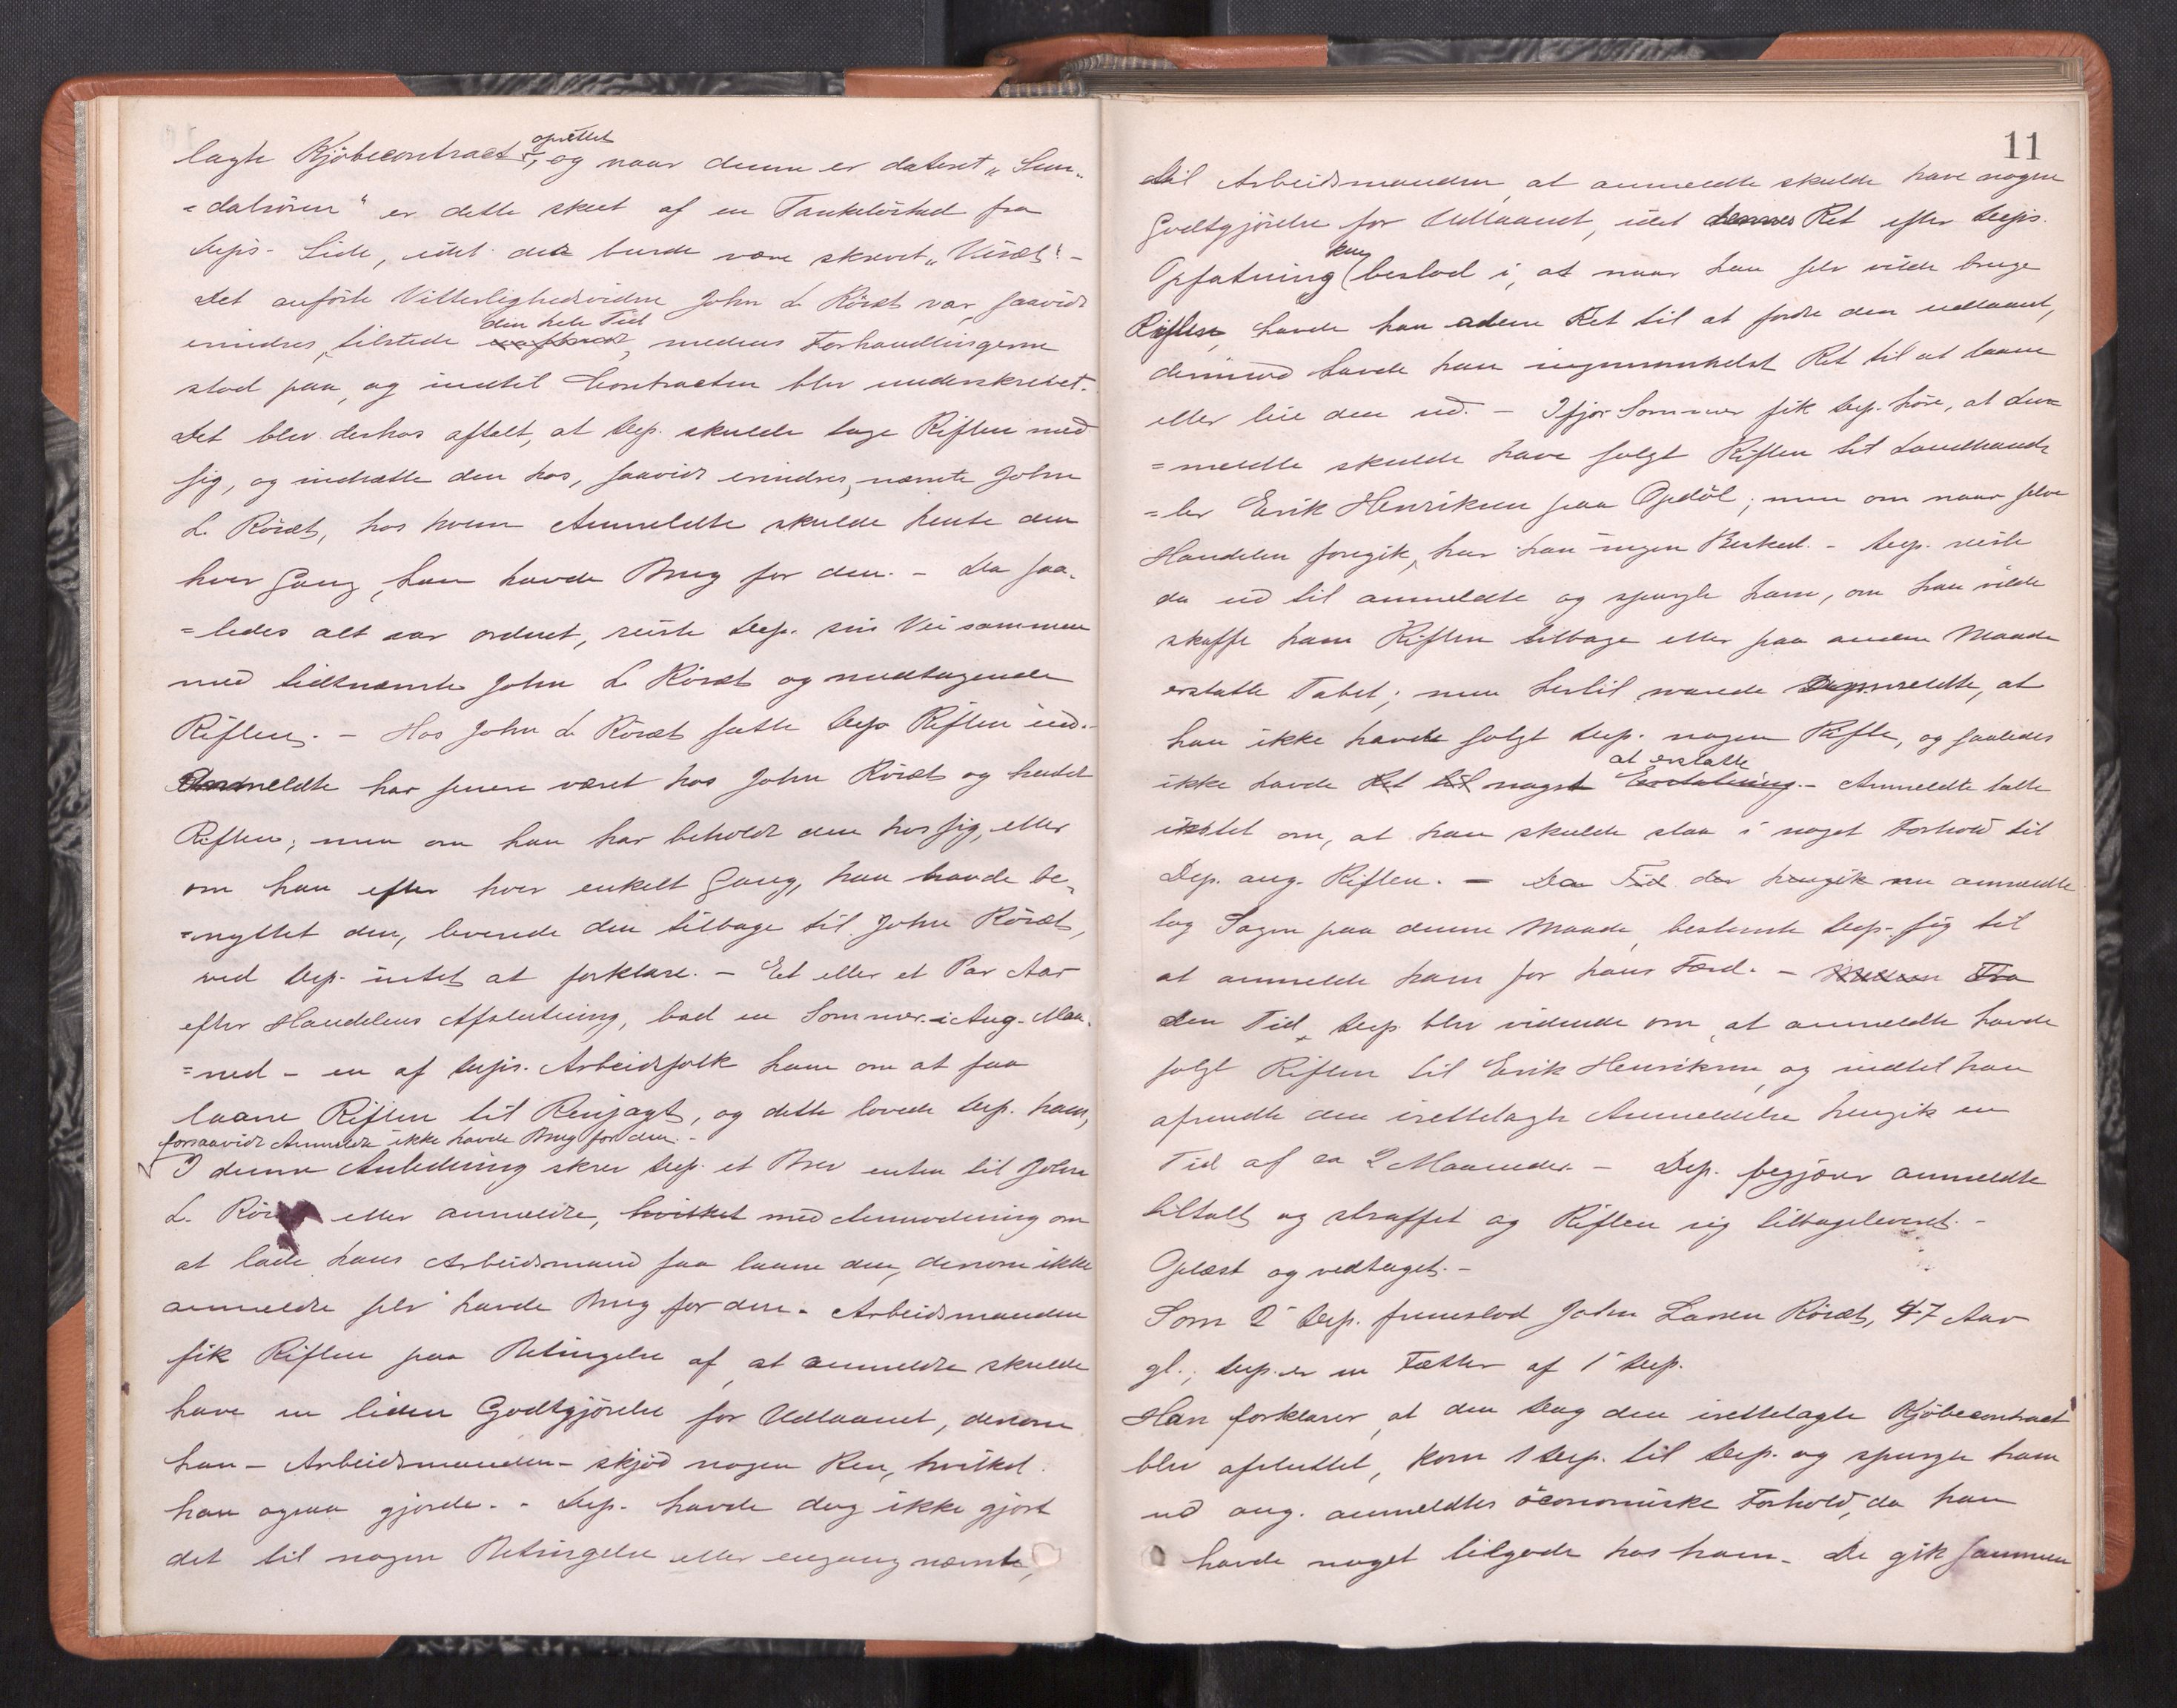 lagte Kjöbecontract oprettet, og naar denne er dateret "Sun-
=dalsören" er dette skeet af en Tankelöshed fra
Dep's. Side, idet der burde være skrevet
Det anförte Vitterlighedsvidne John L Röiæt var, saavidt
erindres, tilstede den hele Tid, medens Forhandlingerne
stod paa, og indtil Contracten blev underskrevet.
Det blev derhos aftalt, at Dep. skulde tage Riflen med
sig, og indsætte den hos, saavidt erindres, nævnte John
L. Röiæt, hos hvem Anmeldte skulde hente den
hver Gang, han havde Brug for den. - Da saa-
=ledes alt var ordnet, reiste Dep. sin Vei sammen
med tidtnævnte John L Röiæt og medtagende
Riflen. - Hos John L Röiæt satte Dep Riflen ind. -
Anmeldte har senere været hos John Röiæt og hentet
Riflen; men om han har beholdt den hos sig, eller
om han efter hver enkelt Gang, han havde be-
=nyttet den, leverede den tilbage til John Röiæt,
ved Dep. intet at forklare. - Et eller et Par Aar
efter Handelens Afslutning, bad en Sommer - i Aug. Maa-
=ned - en af Dep's. Arbeidsfolk ham om at faa
laane Riflen til Renjagt, og dette lovede Dep. ham,
forsaavidt Anmeldte ikke havde Brug for den. -
I denne Anledning skrev Dep. et Brev enten til John
L. Röiæt eller anmeldte, hvilket med Anmodning om
at lade hans Arbeidsmand faa laane den, dersom ikke
anmeldte selv havde Brug for den. Arbeidsmanden
fik Riflen paa Betingelse af, at anmeldte skulde
have en liden Godtgjörelse for Udlaanet, dersom
han - Arbeidsmanden - skjöd nogen Ren, hvilket
han ogsaa gjorde. - Dep. havde dog ikke gjort
det til nogen Betingelse eller engang nævnte,
11
til Arbeidsmanden, at anmeldte skulde have nogen
Godtgjörelse for Udlaanet, idet dennes Ret efter Dep's.
Opfatning kun bestod i, at naar han selv vilde bruge
Riflen, havde han alene Ret til at fordre den udlaant,
derimod havde han ingensomhelst Ret til at laane
eller leie den ud. - Ifjor Sommer fik Dep. höre, at An=
=meldte skulde have solgt Riflen til Landhand-
=ler Erik Henriksen paa Opdöl; men om naar selve
Handelen foregik, har han ingen Besked. - Dep. reiste
da ud til anmeldte og spurgte ham, om han vilde
skaffe ham Riflen tilbage eller paa anden Maade
erstatte Tabet; men hertil svarede Anmeldte, at
han ikke havde solgt Dep. nogen Rifle, og saaledes
ikke havde Ret til noget at erstatte Erstatning. - Anmeldte talte
intet om, at han skulde staa i noget Forhold til
Dep. ang. Riflen. - Da Tid der hengik nu anmeldte
tog Sagen paa denne Maade, bestemte Dep. sig til
at anmelde ham for hans Færd. - Fra
den Tid, Dep. blev vidende om, at anmeldte havde
solgt Riflen til Erik Henriksen, og indtil han
afsendte den irettelagte Anmeldelse hengik en
Tid af ca 2 Maaneder. - Dep. begjærer anmeldte
tiltalt og straffet og Riflen sig tilbageleveret. -
Oplæst og vedtaget. -
Som 2 Dep. fremstod John Larsen Röiæt, 47 Aar
gl.; Dep. er en Fætter af 1 Dep.
Han forklarer, at den Dag den irettelagte Kjöbecontract
blev afsluttet, kom 1 Dep. til Dep. og spurgte ham
ud ang. anmeldtes öconomiske Forhold, da han
havde noget tilgode hos ham. De gik sammen